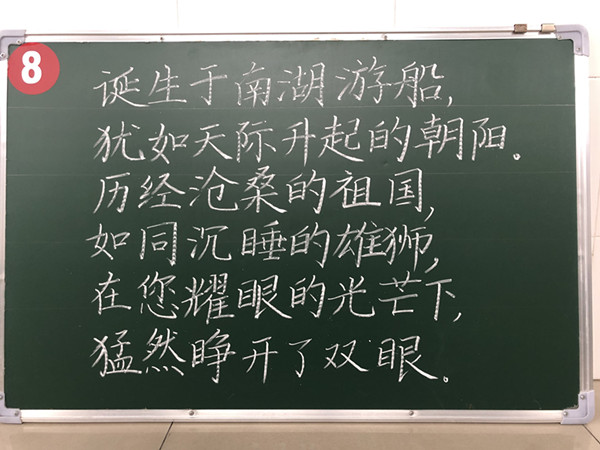 8
诞生于南湖游船,
犹如天际升起的朝阳。
历经沧桑的祖国,
如同沉睡的雄狮,
在您耀眼的光芒下,
猛然睁开了双眼。